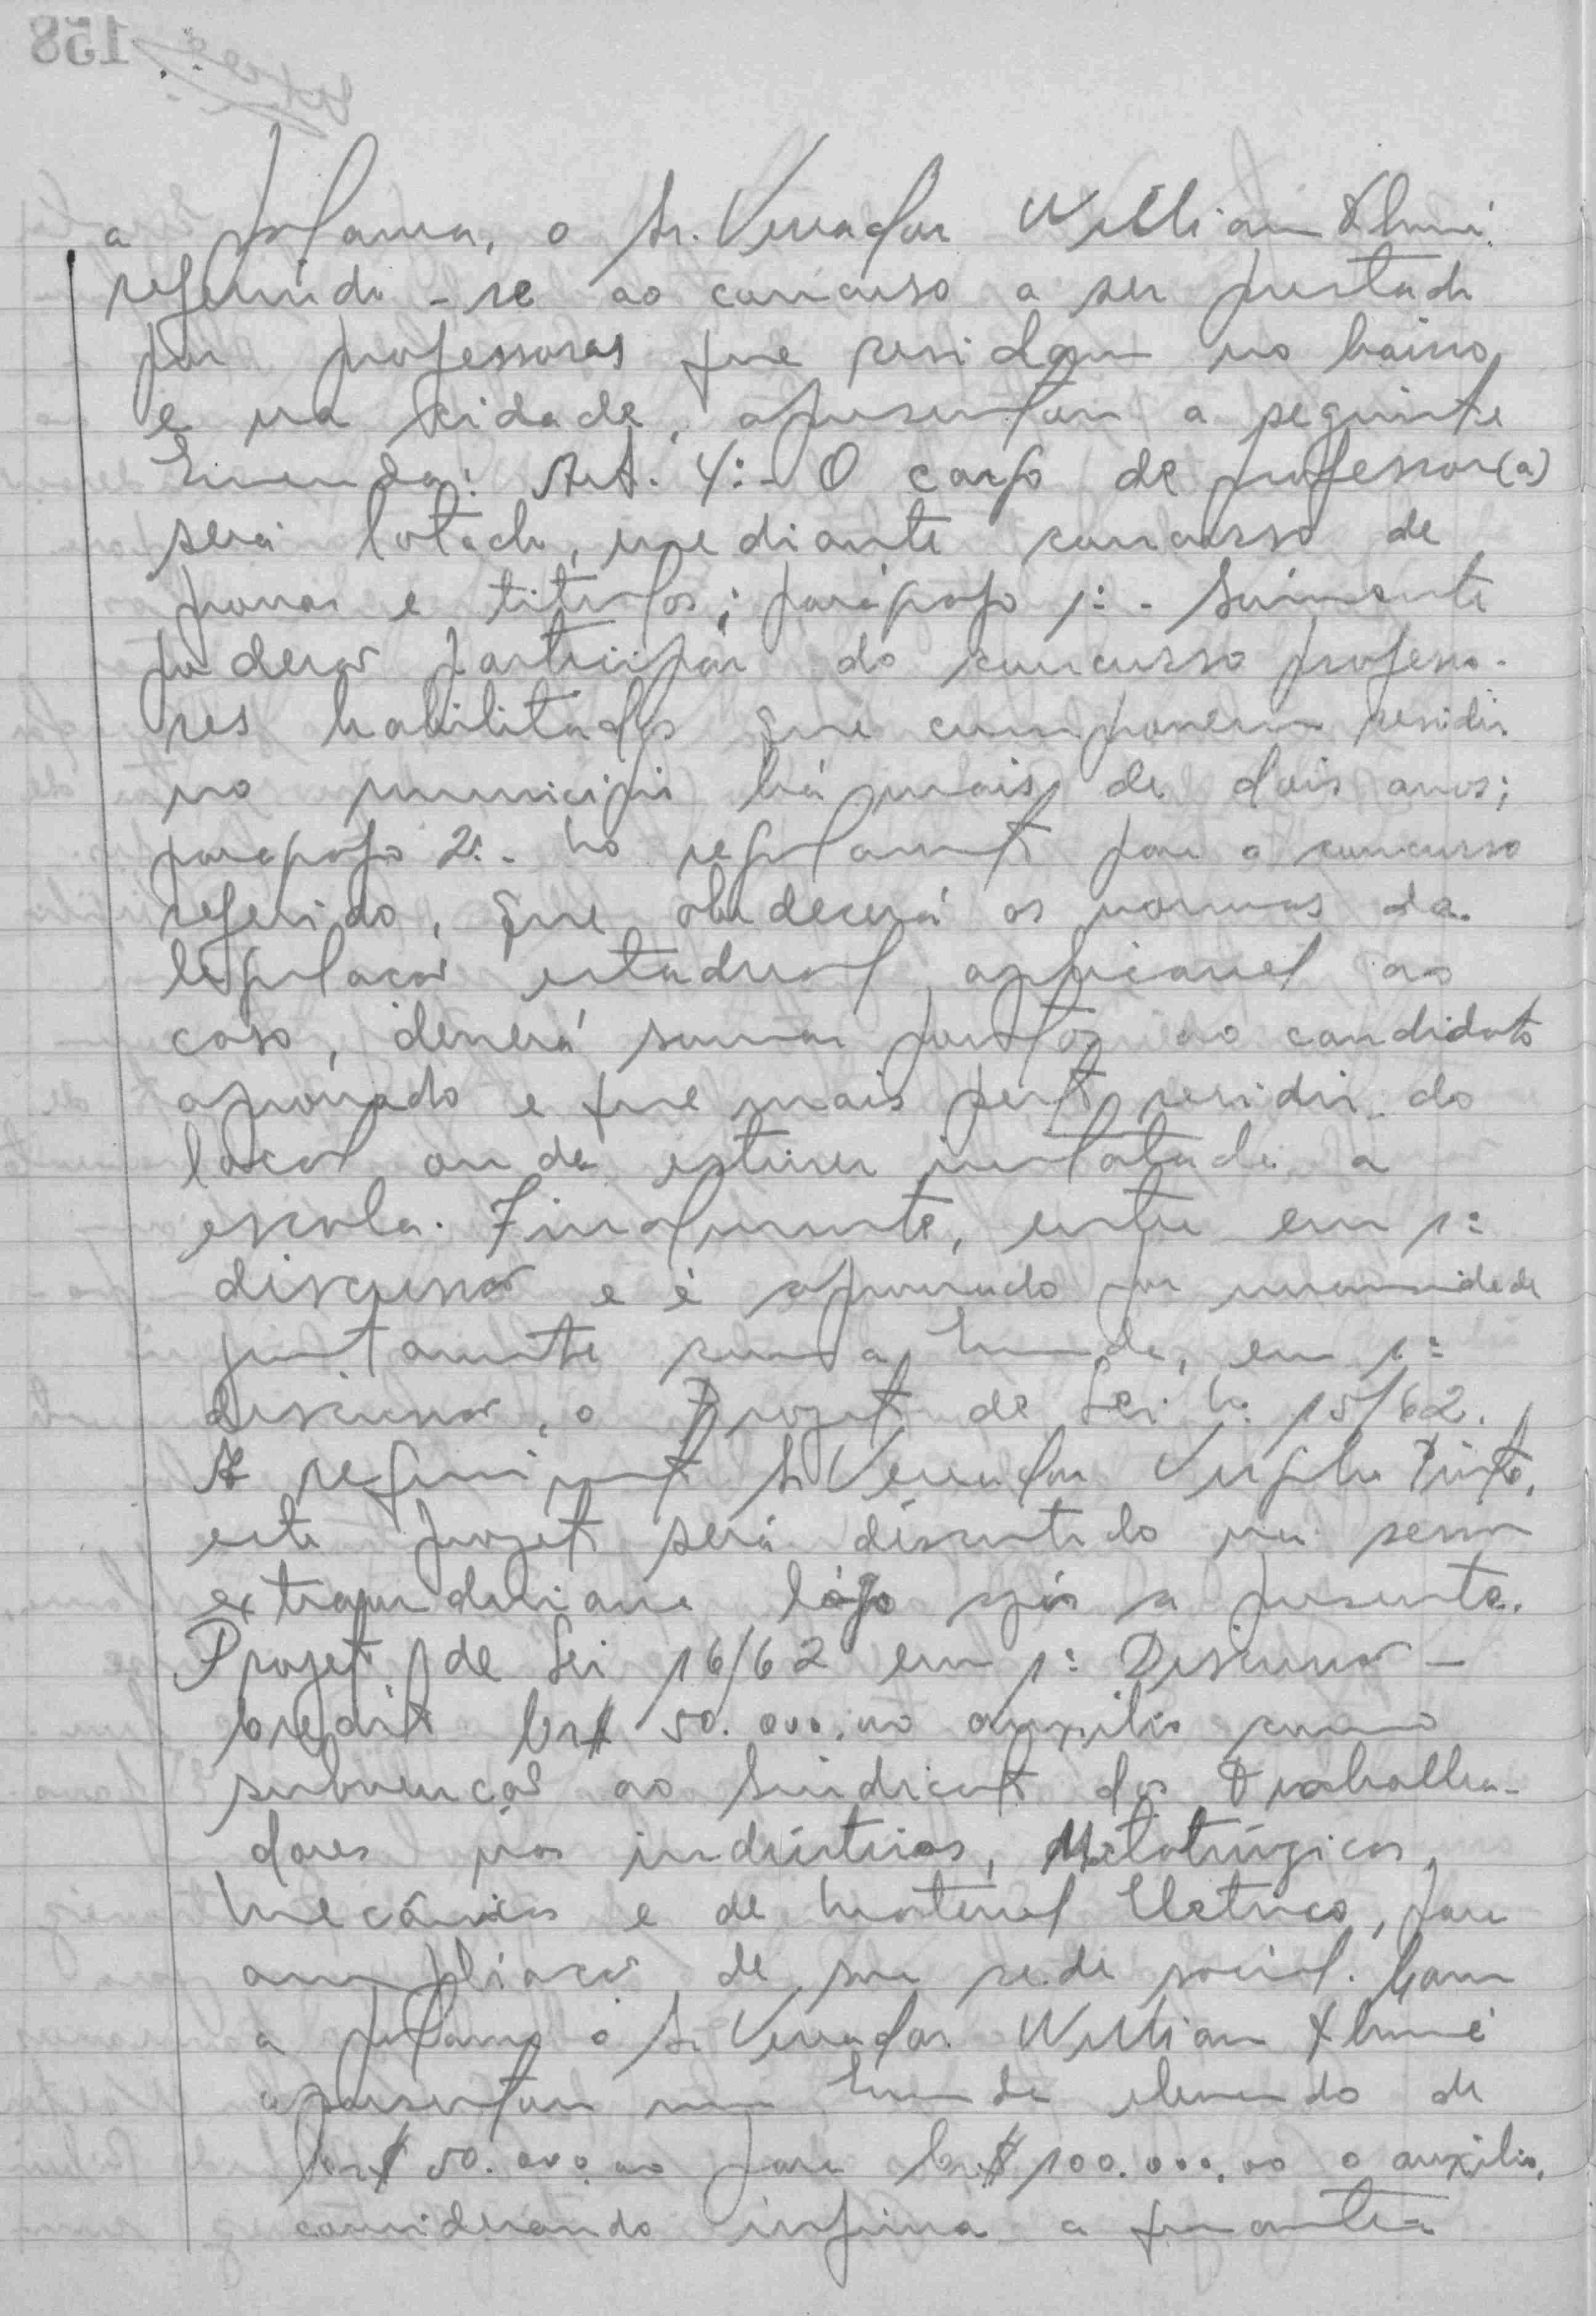 a palavra, o Sr. Vereador William
referindo-se ao concurso a ser prestado
por professoras que residam no bairro
e na cidade, apresentou a seguinte
Emenda: Art. 4º- O cargo de professor(a)
será lotado, mediante concurso de
provas e titulos; parágrafo 1º - Sómente
poderão participar do concurso professo-
res habilitados que comprovem residir
no municipio há mais de dois anos;
paragrafo 2º - No regulamento para o concurso
referido, que obedecerá as normas da
legislação estadual aplicavel ao
caso, deverá somar pontos ao candidato
aprovado e que mais perto residir do
local onde estiver instalada a
escola. Finalmente, entra em 1ª
discussão e é aprovado por unanimidade
juntamente com a Emenda, em 1ª
discussão, o Projeto de Lei No 15/62.
A requerimento Sr Vereador Virgilio Pinto,
este projeto será discutido na sessão
extraordinaria lógo após a presente.
Projeto de Lei 16/62 em 1ª Discussão -
Credito Cr$ 50.000,00 auxilio como
subvenção ao Sindicato dos Trabalha-
dores nas indústrias, Metalúrgicas,
Mecânicas e de Material Eletrico, para
ampliação de sua sede social. Com
a palavra o Sr Vereador William
apresentou uma Emenda elevando de
Cr$ 50.000,00 para Cr$ 100.000,00 o auxilio,
considerando infima a quantia
158